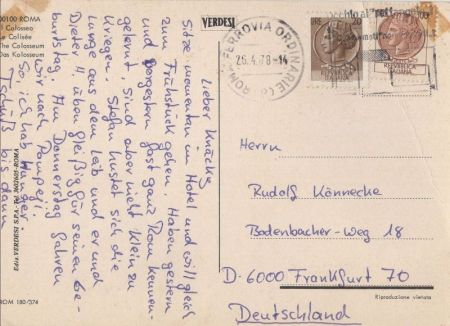 00100 ROMA
Il Colosseo
Le Colisée
The Colosseum
Das Kolosseum
VERDESI
Lieber Knäcke,
Sitze momentan im Hotel und will gleich
zum Frühstück gehen. Haben gestern
und vorgestern fast ganz Rom kennen-
gelernt, sind aber nicht klein zu
kriegen. Stefan hustet sich die
Lunge aus dem Leib und er und
Dieter H. üben fleißig für seinen Ge-
burtstag. Am Donnerstag fahren
wir nach Pompeji.
So, ich hab
Tschüß bis dann
ROM 180/374
ROMA FERROVIA ORDINARIE
26.4.78-14
REPUBBLICA
ITALIANA
Herrn
Rudolf Könnecke
Bodenbacher-Weg 18
D-6000 Frankfurt 70
Deutschland
Riproduzione vietata